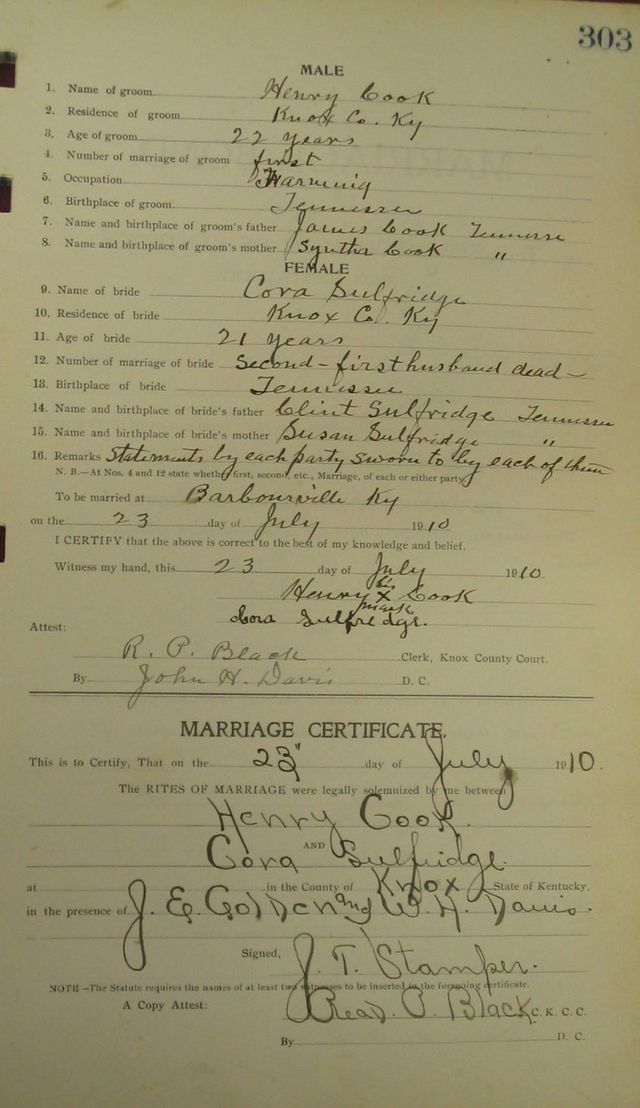 303
MALE
1. Name of groom Henry Cook
2. Residence of groom Knox Co. Ky
3. Age of groom 22 years
4. Number of marriage of groom first
5. Occupation
6. Birthplace of groom Tennessee
7. Name and birthplace of groom's father James Cook Tennessee
8. Name and birthplace of groom's mother Syntha Cook "
FEMALE
9. Name of bride Cora Sulfridge
10. Residence of bride Knox Co. Ky
11. Age of bride 21 years
12. Number of marriage of bride Second - first husband dead -
13. Birthplace of bride Tennessee
14. Name and birthplace of bride's father Clint Sulfridge Tennessee
15. Name and birthplace of bride's mother Susan Sulfridge "
16. Remarks Statements by each party sworn to by each of them
N. B.—At Nos. 4 and 12 state whether first, second, etc., Marriage, of each or either party
To be married at Barbourville Ky
on the 23 day of July 1910
I CERTIFY that the above is correct to the best of my knowledge and belief.
Witness my hand, this 23 day of July 1910
his
Henry X Cook
mark
Cora Sulfridge.
Attest:
R. P. Black Clerk, Knox County Court.
By John H. Davis D. C.
MARRIAGE CERTIFICATE.
This is to Certify, That on the 23" day of July 1910.
The RITES OF MARRIAGE were legally solemnized by me between
Henry Cook.
AND
Cora Sulfridge.
at in the County of Knox State of Kentucky,
in the presence of J. E. Golden and W. H. Davis.
Signed, J. T. Stamper.
NOTE—The Statute requires the names of at least two witnesses to be inserted in the foregoing certificate.
A Copy Attest: Read. P. Black C. K. C. C.
By D. C.